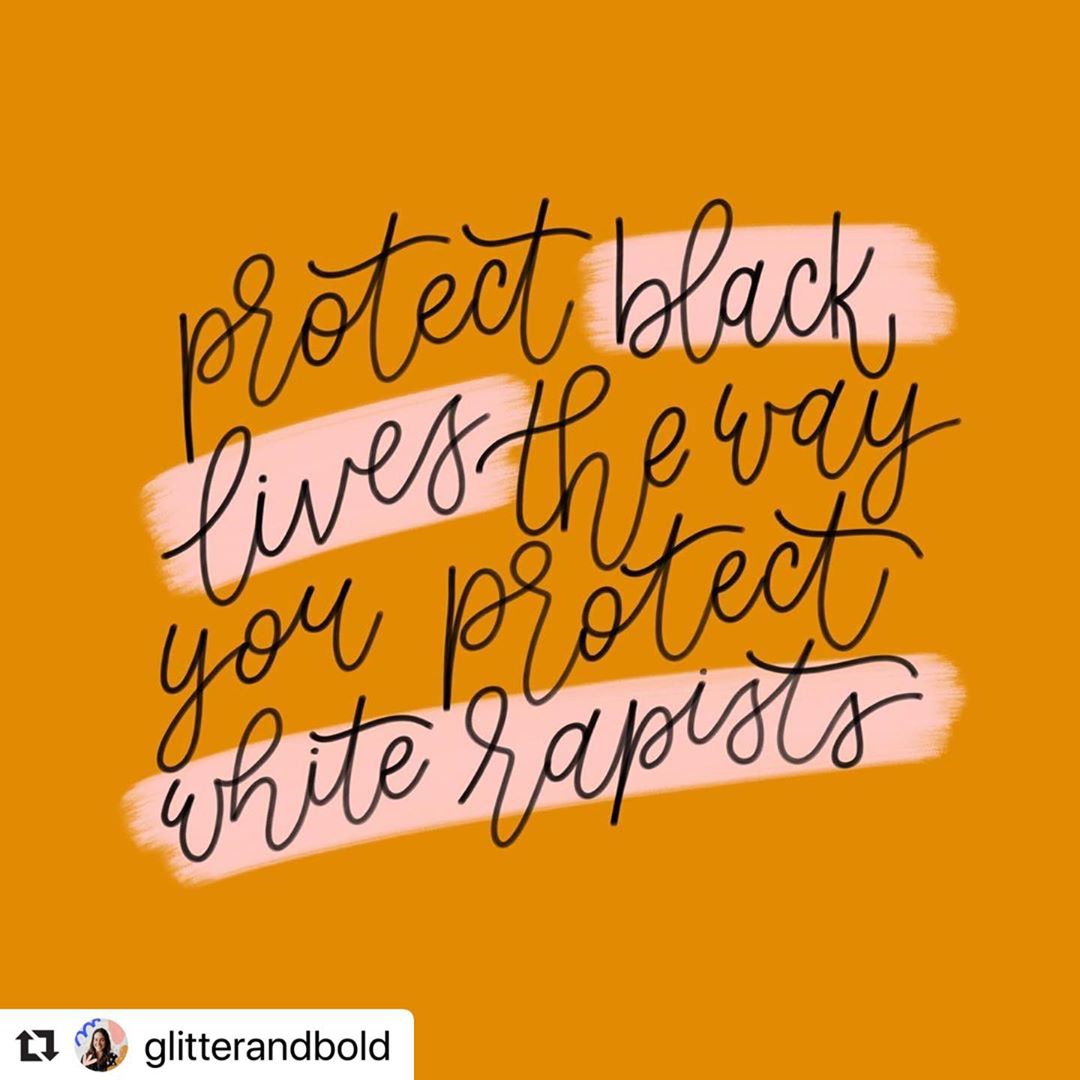 protect black
lives the way
you protect
white rapists
glitterandbold